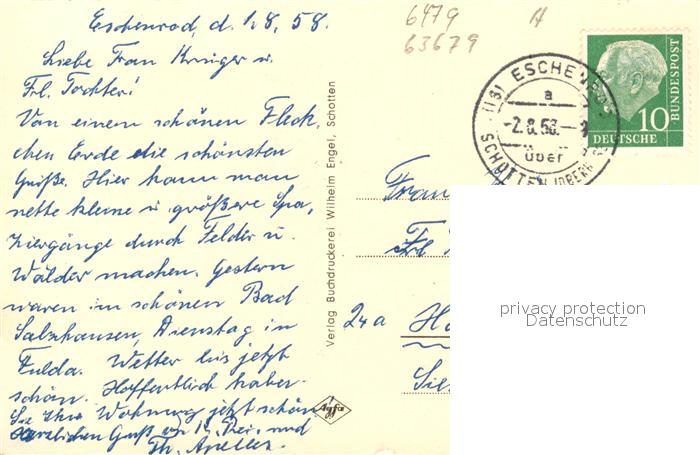 Eschenrod, d. 1.8.58.
Liebe Frau Krüger u.
Frl. Tochter!
Von einem schönen Fleck-
chen Erde die schönsten
Grüße. Hier kann man
nette kleine u. größere Spa-
ziergänge durch Felder u.
Wälder machen. Gestern
waren im schönen Bad
Salzhausen, Dienstag in
Fulda. Wetter bis jetzt
schön. Hoffentlich haben
Sie Ihre Wohnung jetzt schön
Herzlichen Gruß und
Th.
6479
63679
Verlag Buchdruckerei Wilhelm Engel, Schotten
Agfa
(16) ESCHENROD
a
-2.8.58.-
über
SCHOTTEN
10
DEUTSCHE
BUNDESPOST
Frau
Frl
24a
privacy protection
Datenschutz